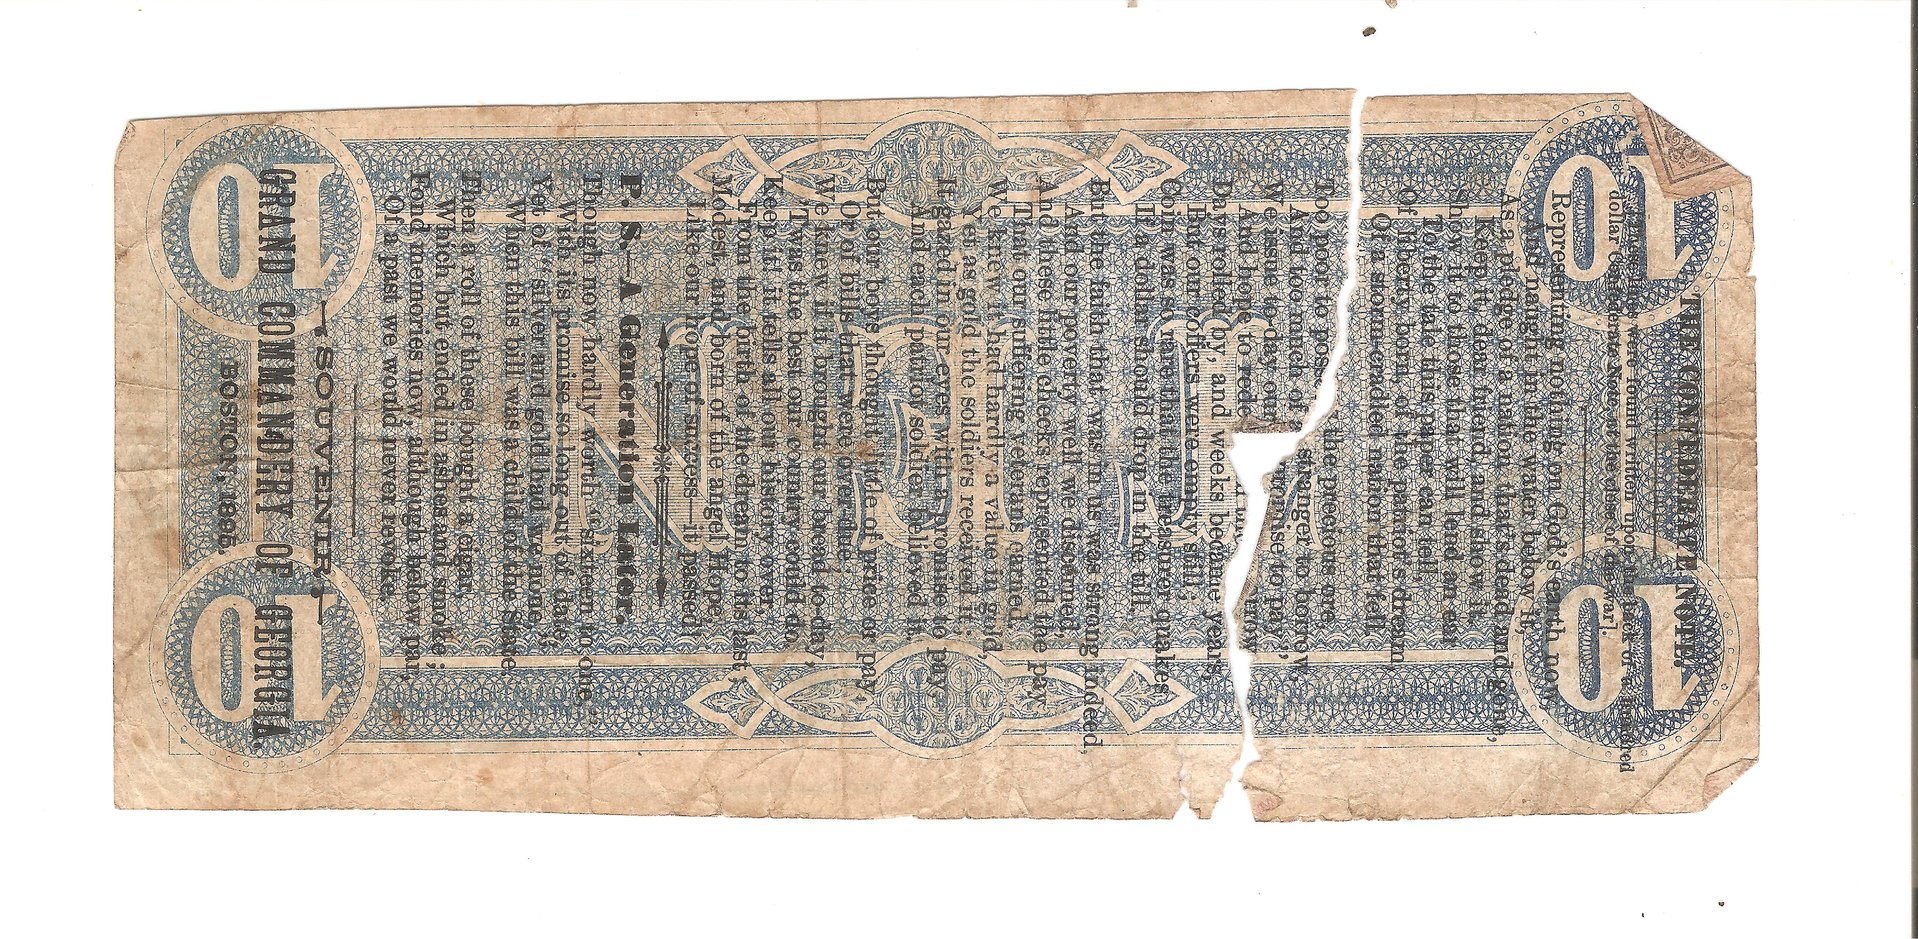 THE CONFEDERATE NOTE.
were found written upon the back of a hundred
dollar Confederate Note since the close of the war].
Representing nothing on God's earth now,
And naught in the water below it;
As a pledge of a nation that's dead and gone,
Keep it, dear friend, and show it.
Show it to those that will lend an ear
To the tale this paper can tell,
Of liberty born, of the patriot's dream
Of a storm-cradled nation that fell.
Too poor to possess the precious ore
And too much of stranger to borrow,
We issue to-day our promise to pay,
And hope to rede
Days rolled by, and weeks became years,
But our coffers were empty still;
Coin was so rare that the treasurer quakes
If a dollar should drop in the till.
But the faith that was in us was strong indeed,
And our poverty well we discerned,
And these little checks represented the pay
That our suffering veterans earned.
We knew it had hardly a value in gold,
Yet as gold the soldiers received it;
If gazed in our eyes with a promise to pay,
And each patriot soldier believed it.
But our boys thought little of price or pay,
Or of bills that were over-due
We knew if it brought our bread to-day,
'Twas the best our country could do.
Keep it! it tells all our history over,
From the birth of the dream to its last;
Modest, and born of the angel Hope,
Like our hope of success—it passed!
P. S.—A Generation Later.
Though now hardly worth "sixteen to one,"
With its promise so long out of date,
Yet of "silver and gold had we none,"
When this bill was a child of the State.
Then a roll of these bought a cigar,
Which but ended in ashes and smoke;
Fond memories now, although below par,
Of a past we would never revoke.
SOUVENIR
GRAND COMMANDERY OF GEORGIA.
BOSTON, 1895.
10
10
TEN
10
10